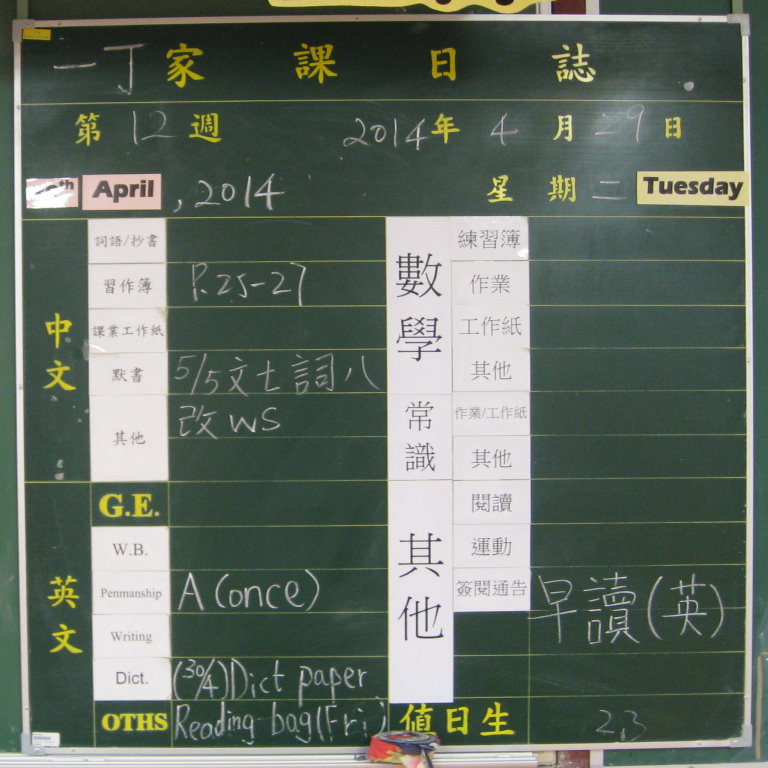 一丁家課日誌
第12週 2014年4月29日
April, 2014 星期二 Tuesday
中文
詞語/抄書
習作簿 P.25-27
課業工作紙
默書 5/5文七詞八
其他 改WS
英文
G.E.
W.B.
Penmanship A (once)
Writing
Dict. (30/4) Dict paper
OTHS Reading bag (Fri)
數學
練習簿
作業
工作紙
其他
常識
作業/工作紙
其他
其他
閱讀
運動
簽閱通告 早讀(英)
值日生 2,3